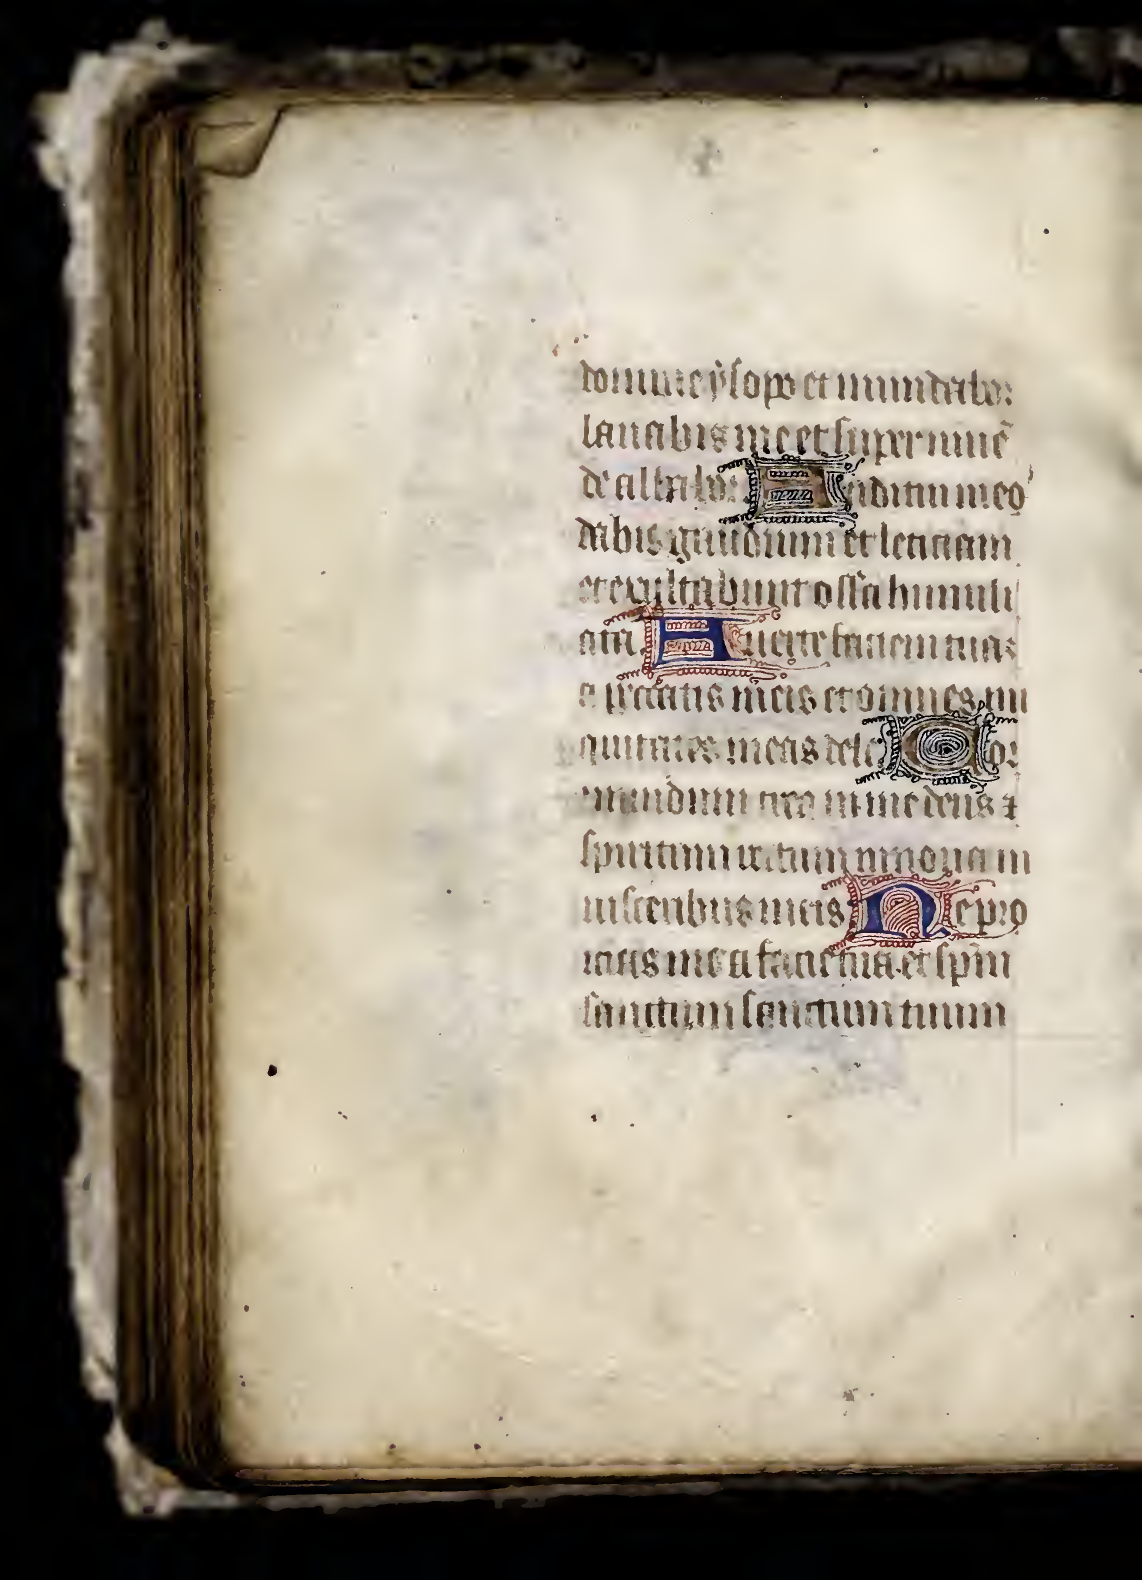 domine ysopo et mundabor
lauabis me et super niuē
dealbabor Auditui meo
dabis gaudium et leticiam
et exultabunt ossa humili
ata Auerte faciem tuaz
a peccatis meis et omnes ini
quitates meas dele Cor
mundum crea in me deus ⁊
spiritum rectum innoua in
uisceribus meis Ne pro
icias me a facie tua et spm
sanctum sanctum tuum